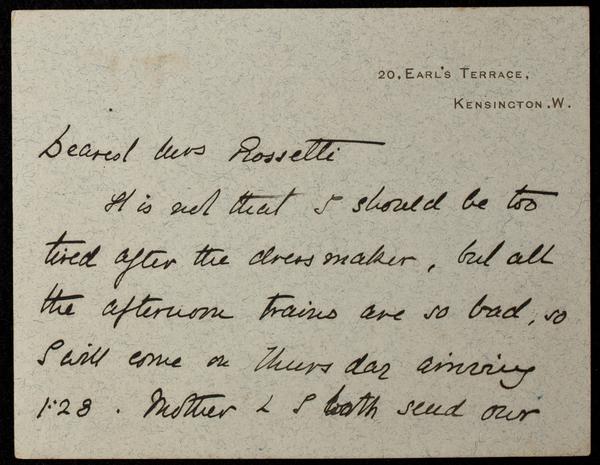 20, EARL'S TERRACE,
KENSINGTON .W.
Dearest Mrs Rossetti
It is not that I should be too
tired after the dressmaker, but all
the afternoon trains are so bad, so
I will come on Thursday arriving
1.23. Mother & I both send our